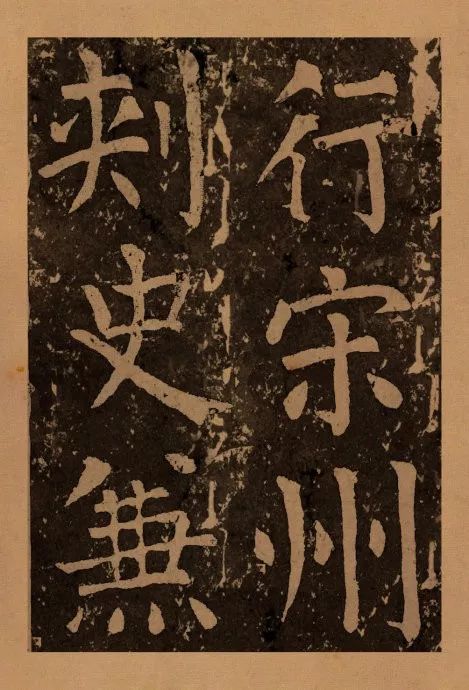 行宋州
刺史兼